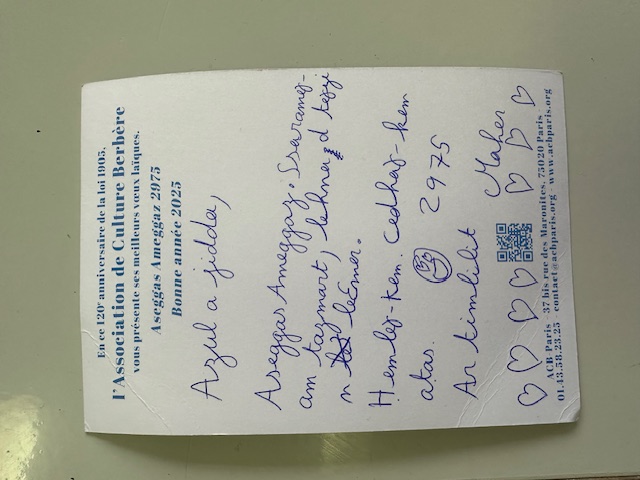 En ce 120e anniversaire de la loi 1905,
l'Association de Culture Berbère
vous présente ses meilleurs vœux laïques.
Aseggas Ameggaz 2975
Bonne année 2025
Azul a jidda,
Aseggas Ameggaz. Ssarameɣ-
am tazmart, lehna, d teɣzi
n leƐmer.
Ḥemleɣ-kem. Cedhaɣ-kem
atas. 2975
Ar timlilit
Maher
ACB Paris - 37 bis rue des Maronites, 75020 Paris
01.43.58.23.25 - contact@acbparis.org - www.acbparis.org